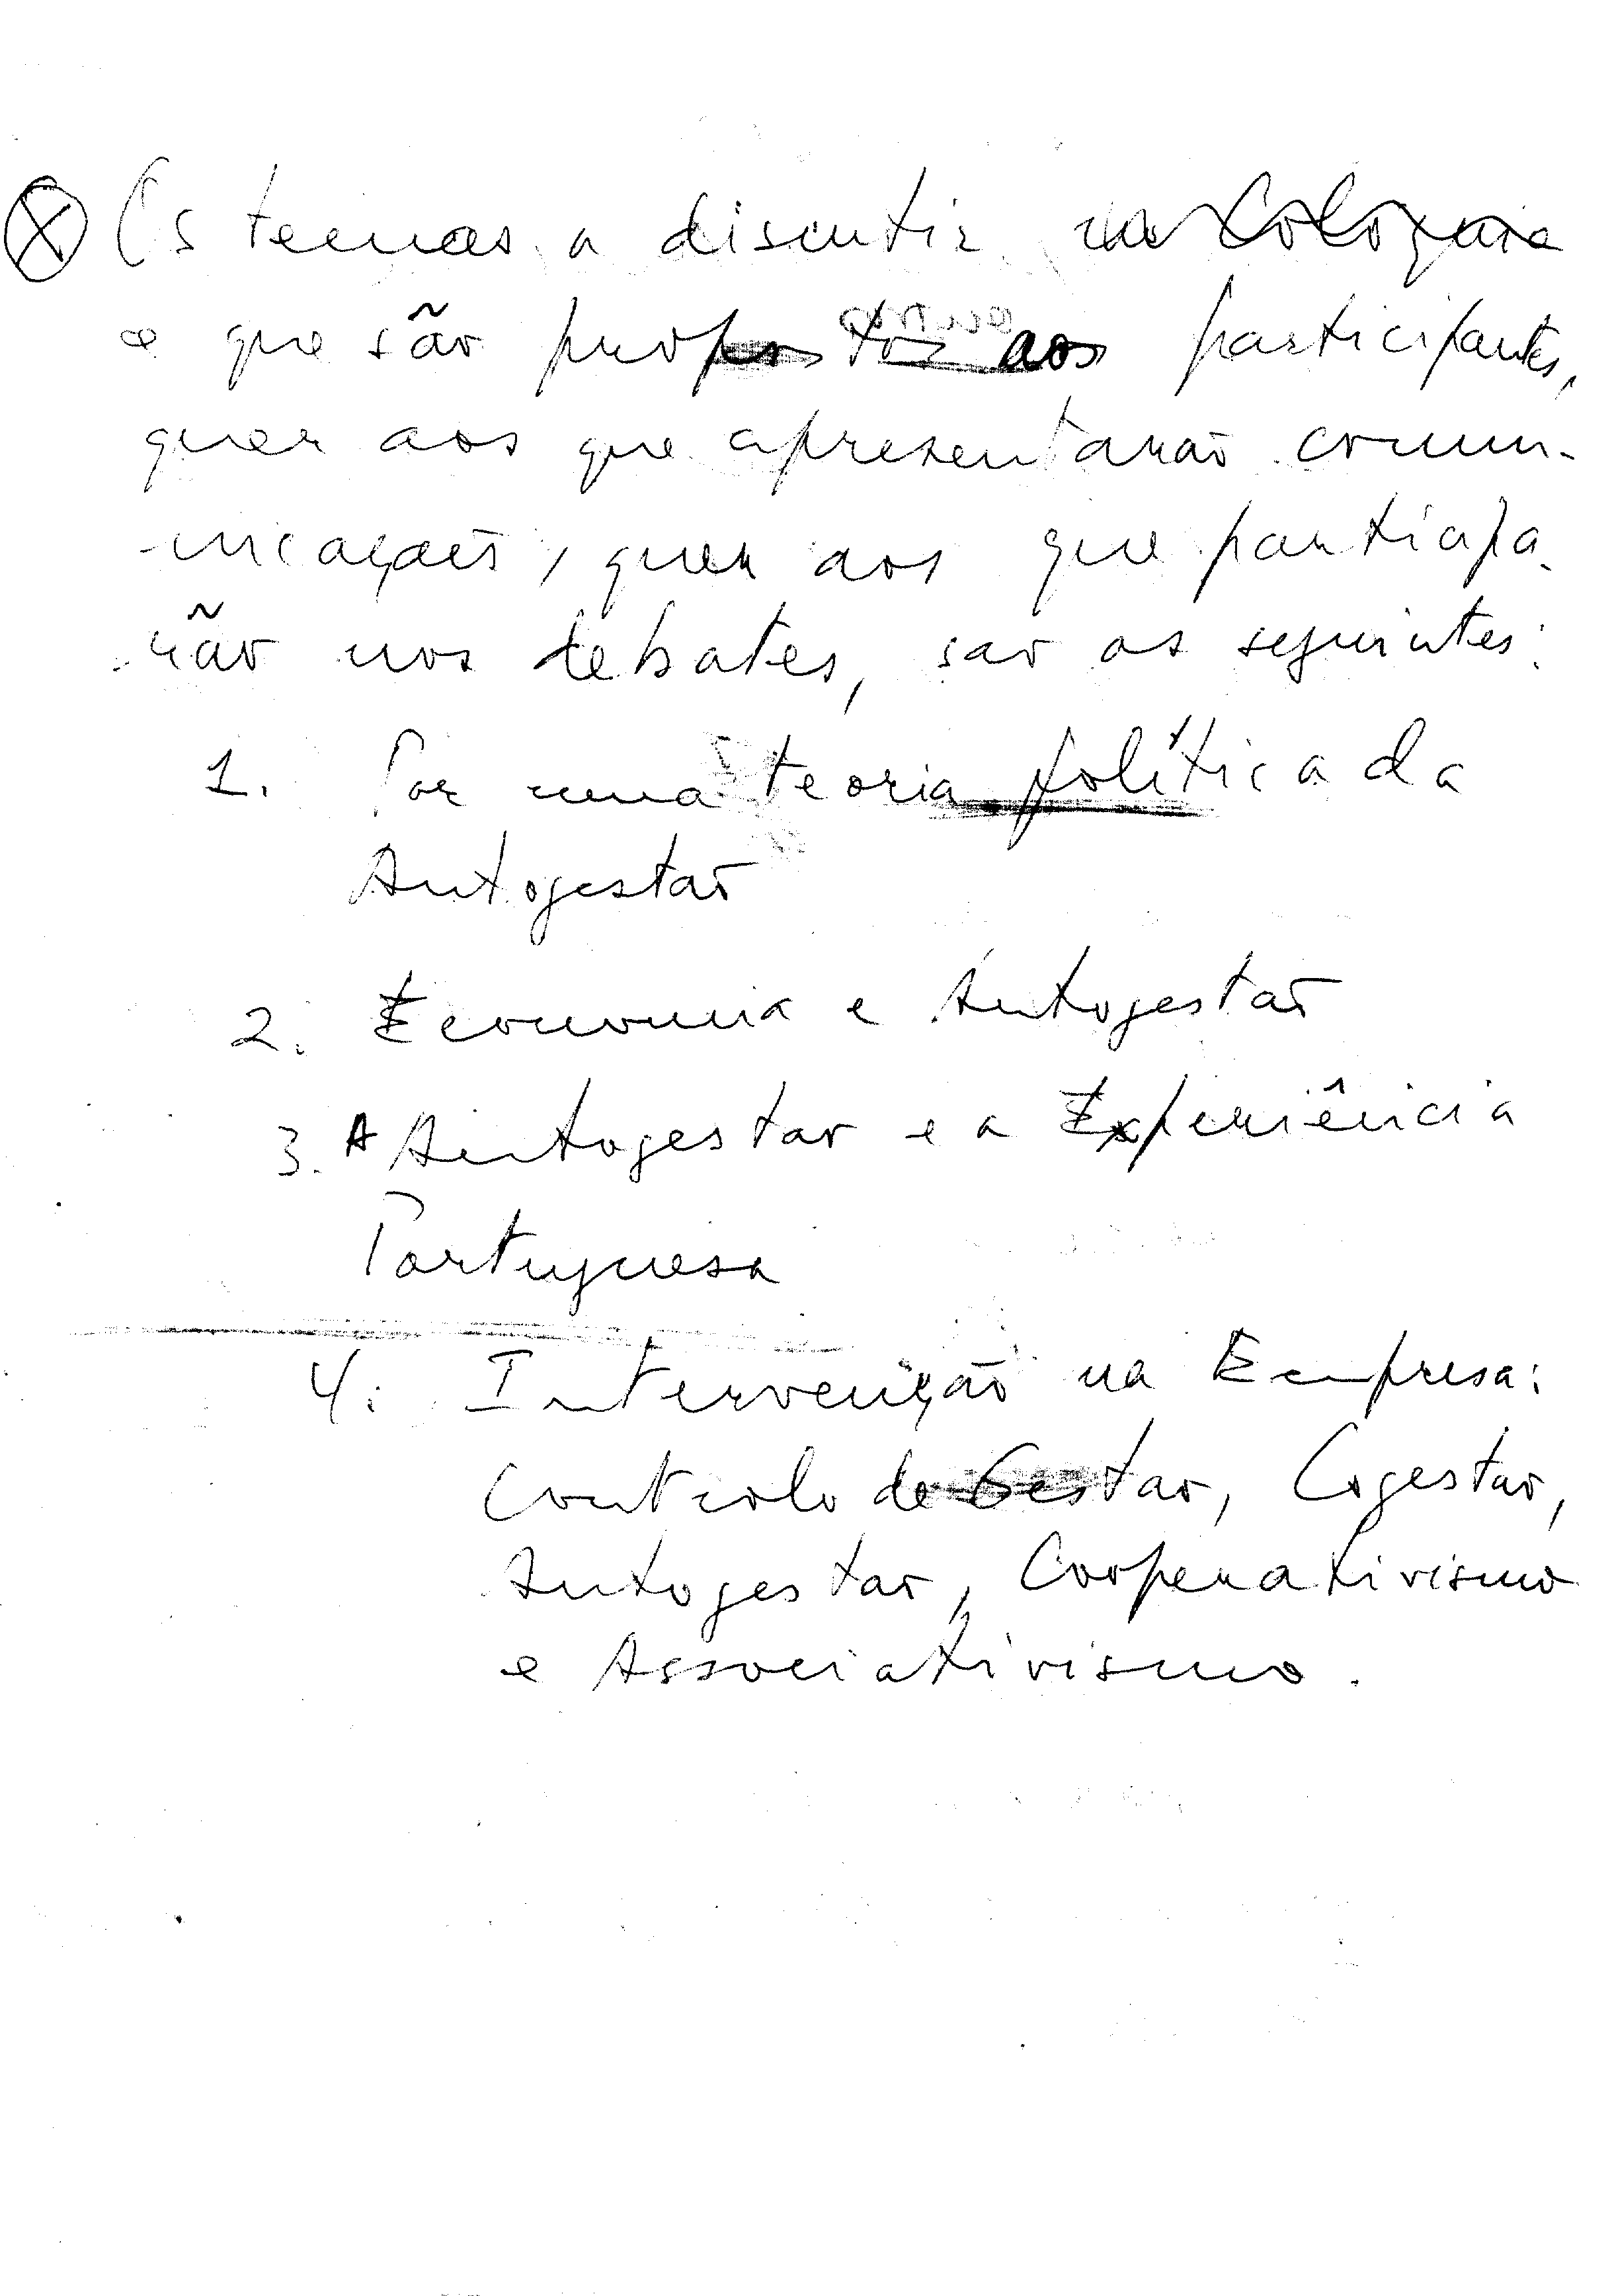 Os temas a discutir no Coloquio
e que são propostos aos participantes,
quer aos que apresentarão comu-
-nicações, quer aos que participa-
-rão nos debates, sao os seguintes:
1. Por uma teoria política da
Autogestão
2. Economia e Autogestão
3. A Autogestao e a Experiência
Portuguesa
4. Intervenção na Empresa:
Controlo de Gestao, Cogestao,
Autogestao, Cooperativismo
e Associativismo.